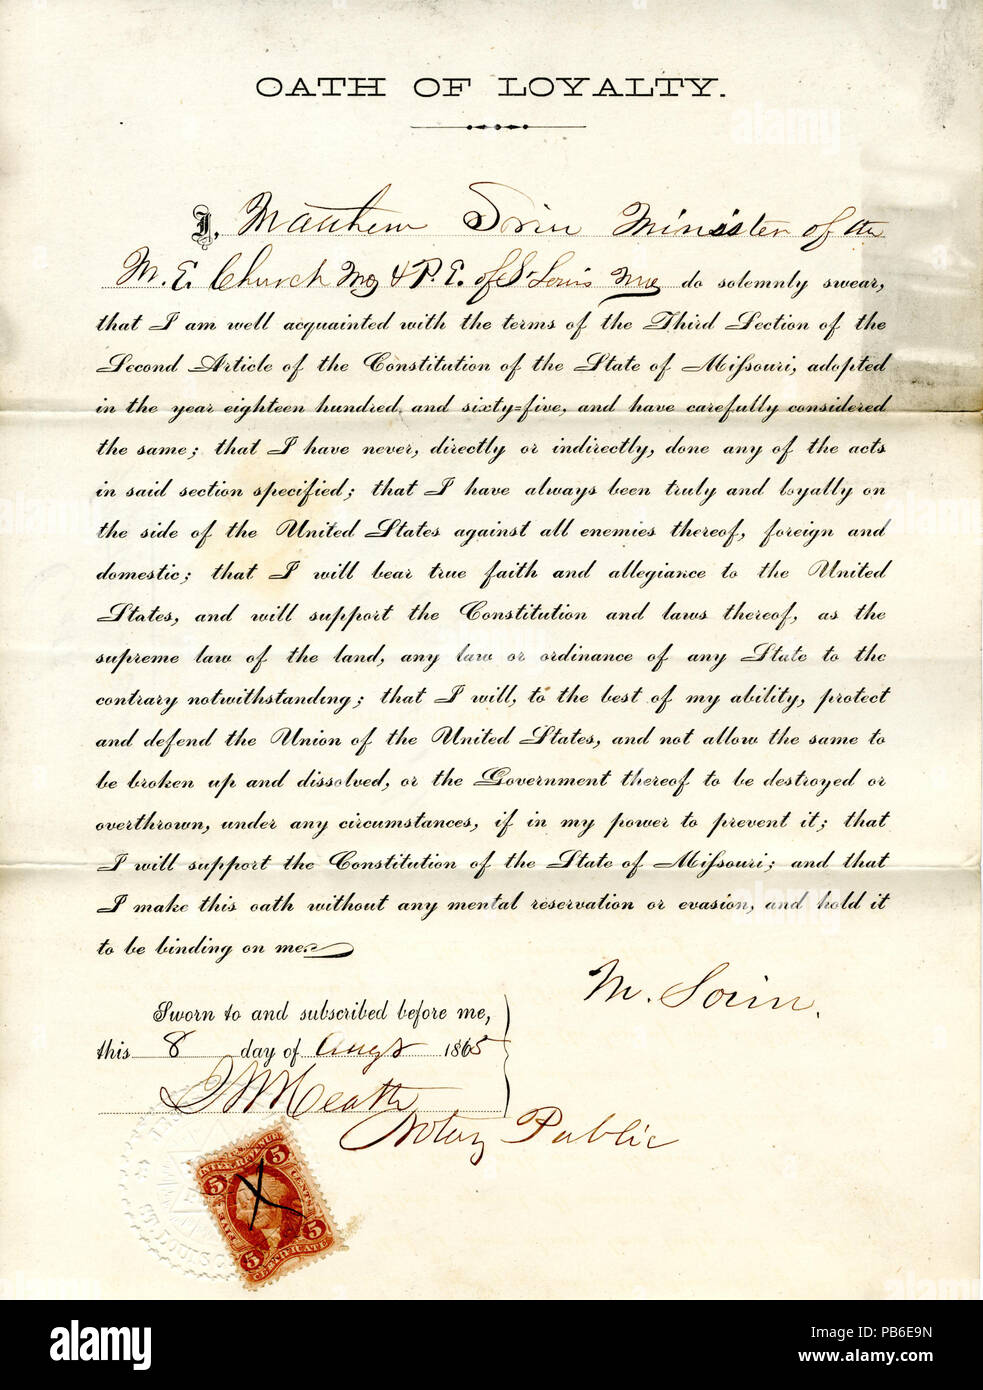 OATH OF LOYALTY.
I, Matthew Sorin Minister of the
M. E. Church & P. E. of St Louis do solemnly swear,
that I am well acquainted with the terms of the Third Section of the
Second Article of the Constitution of the State of Missouri, adopted
in the year eighteen hundred and sixty-five, and have carefully considered
the same; that I have never, directly or indirectly, done any of the acts
in said section specified; that I have always been truly and loyally on
the side of the United States against all enemies thereof, foreign and
domestic; that I will bear true faith and allegiance to the United
States, and will support the Constitution and laws thereof, as the
supreme law of the land, any law or ordinance of any State to the
contrary notwithstanding; that I will, to the best of my ability, protect
and defend the Union of the United States, and not allow the same to
be broken up and dissolved, or the Government thereof to be destroyed or
overthrown, under any circumstances, if in my power to prevent it; that
I will support the Constitution of the State of Missouri; and that
I make this oath without any mental reservation or evasion, and hold it
to be binding on me.
M. Sorin.
Sworn to and subscribed before me,
this 8 day of Augt 1865
Heath
Notary Public
INTER. REVENUE
5 5
FIVE CENTS
5 5
CERTIFICATE
ST. LOUIS
alamy
alamy
Image ID: PB6E9N
www.alamy.com